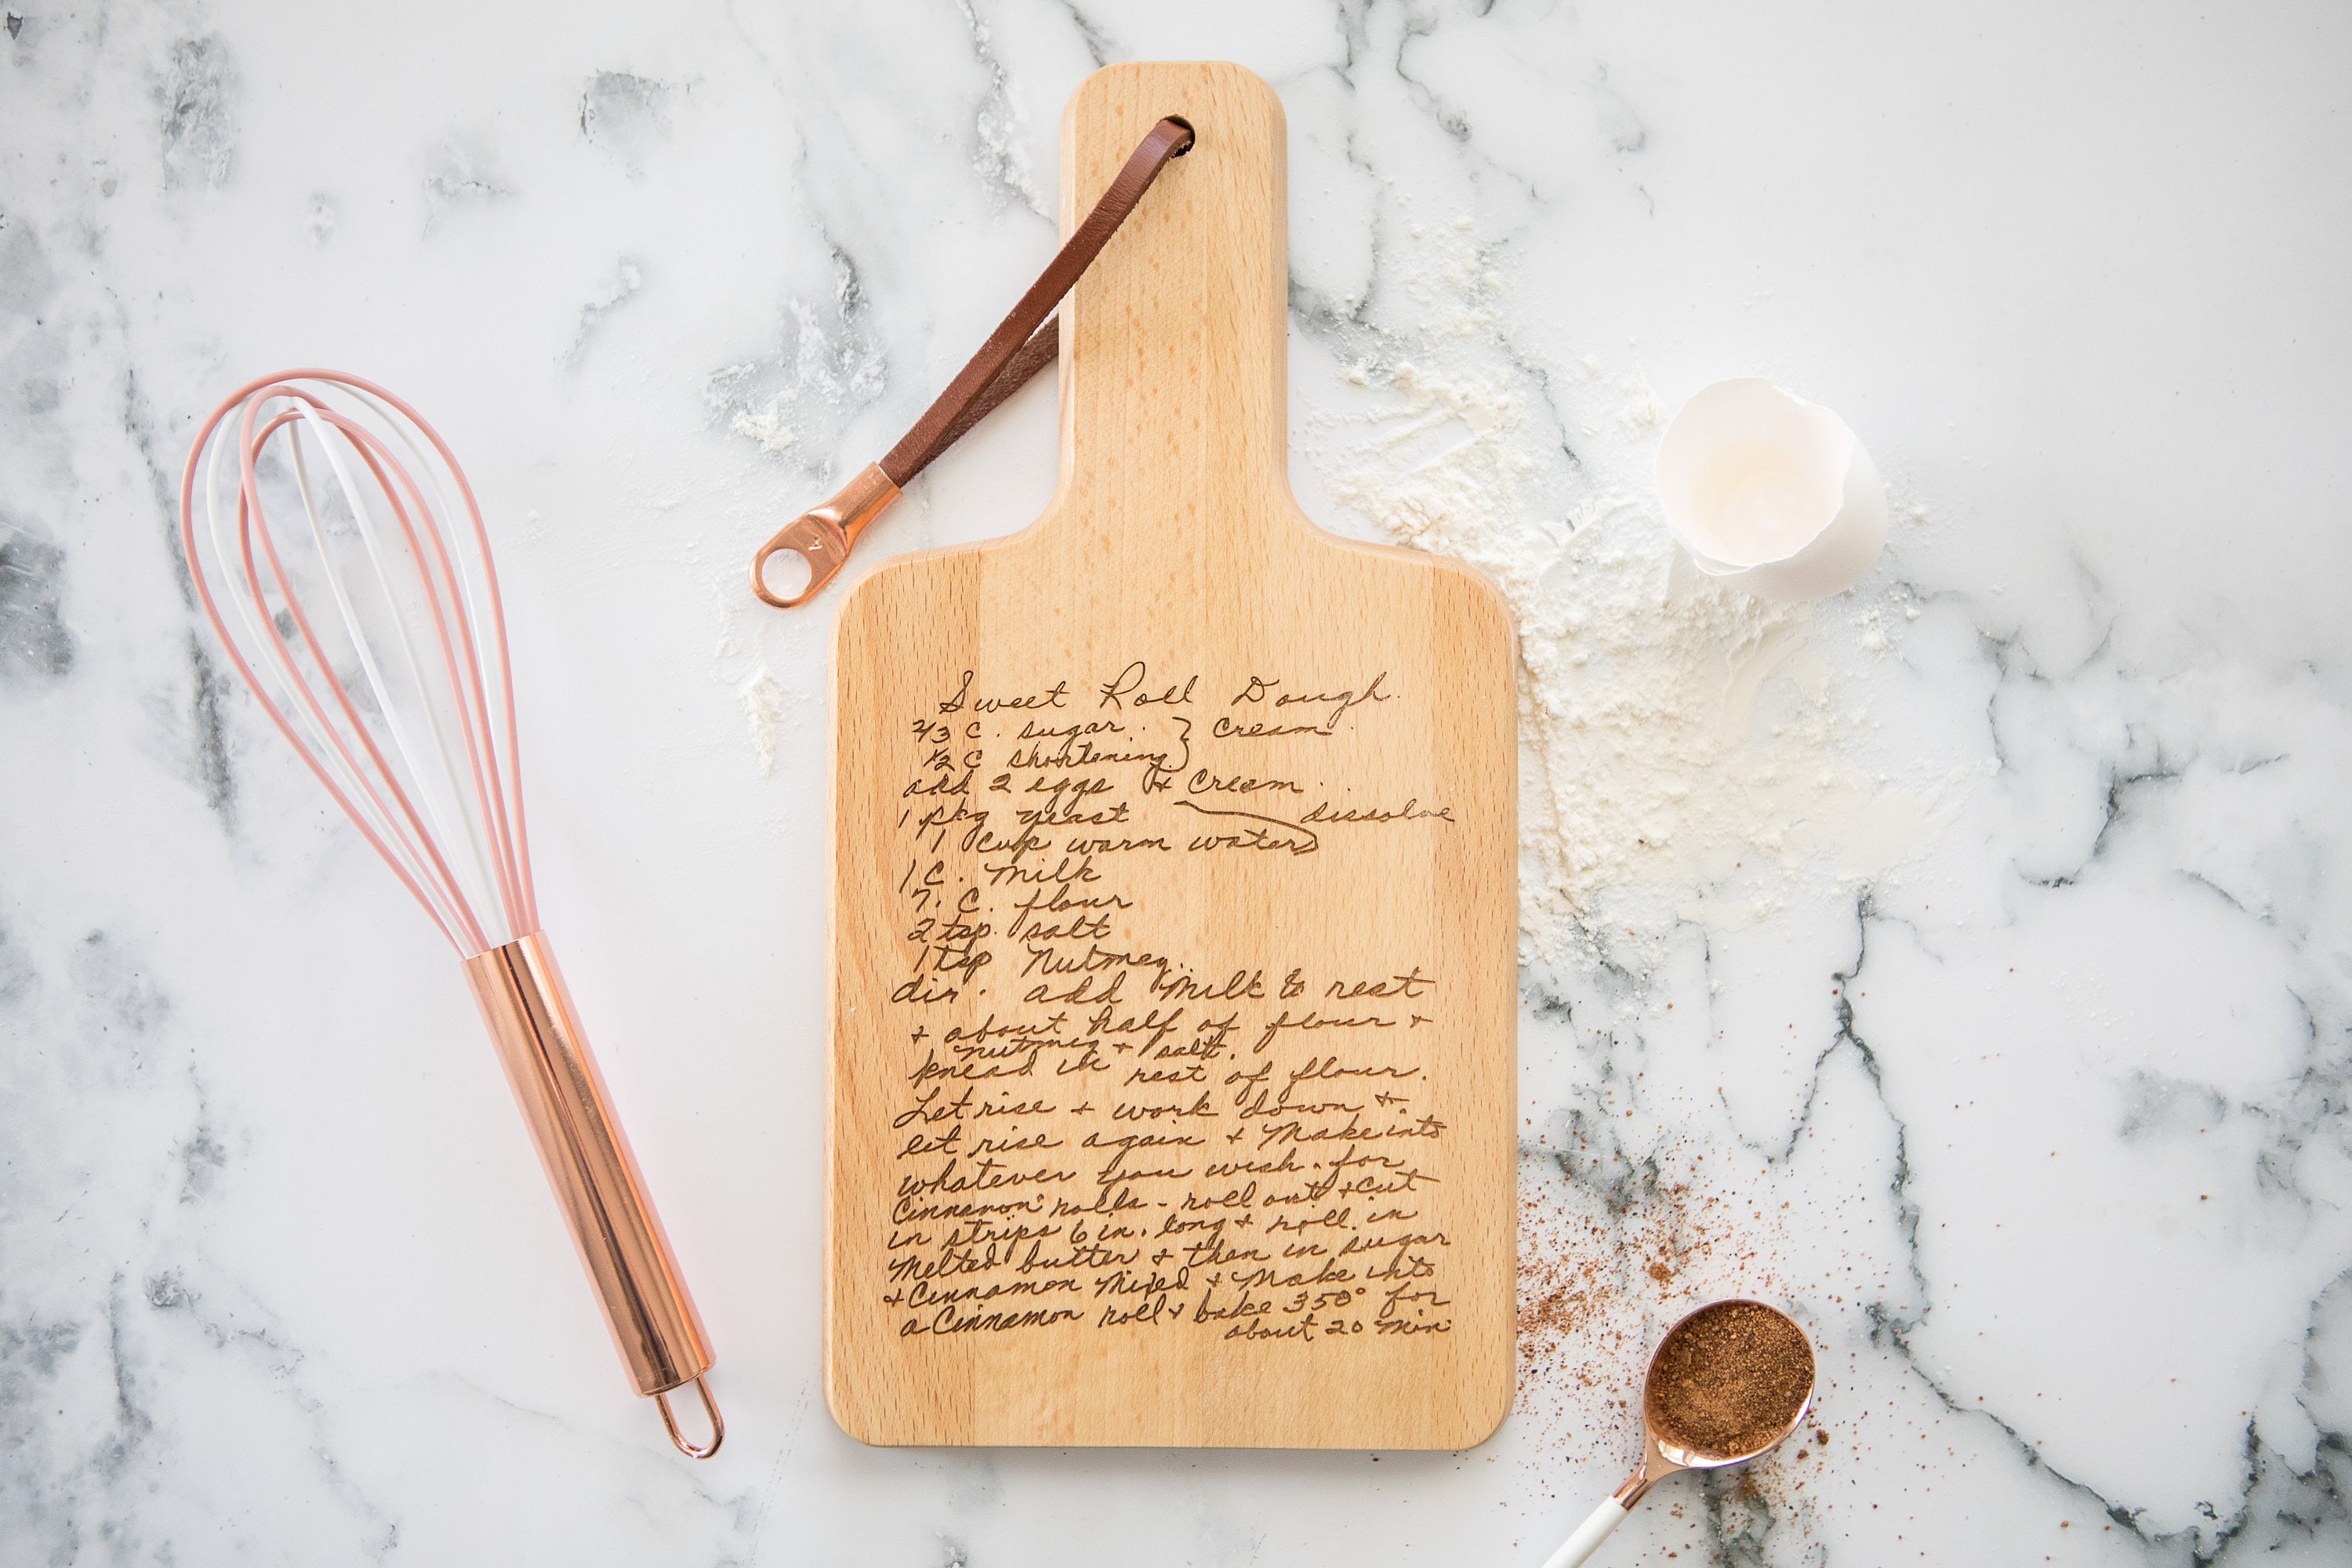 Sweet Roll Dough
2/3 C. sugar } Cream
1/2 C shortening
add 2 eggs & Cream
1 pkg yeast dissolve
1 Cup warm water
1 C. Milk
7. C. flour
2 tsp. salt
1 tsp Nutmeg
dir. add Milk to rest
+ about half of flour +
nutmeg + salt.
knead in rest of flour.
Let rise + work down +
let rise again + Make into
whatever you wish. for
Cinnamon rolls - roll out + cut
in strips 6 in. long + roll in
Melted butter + then in sugar
+ Cinnamon Mixed + Make into
a Cinnamon roll + bake 350° for
about 20 min
4